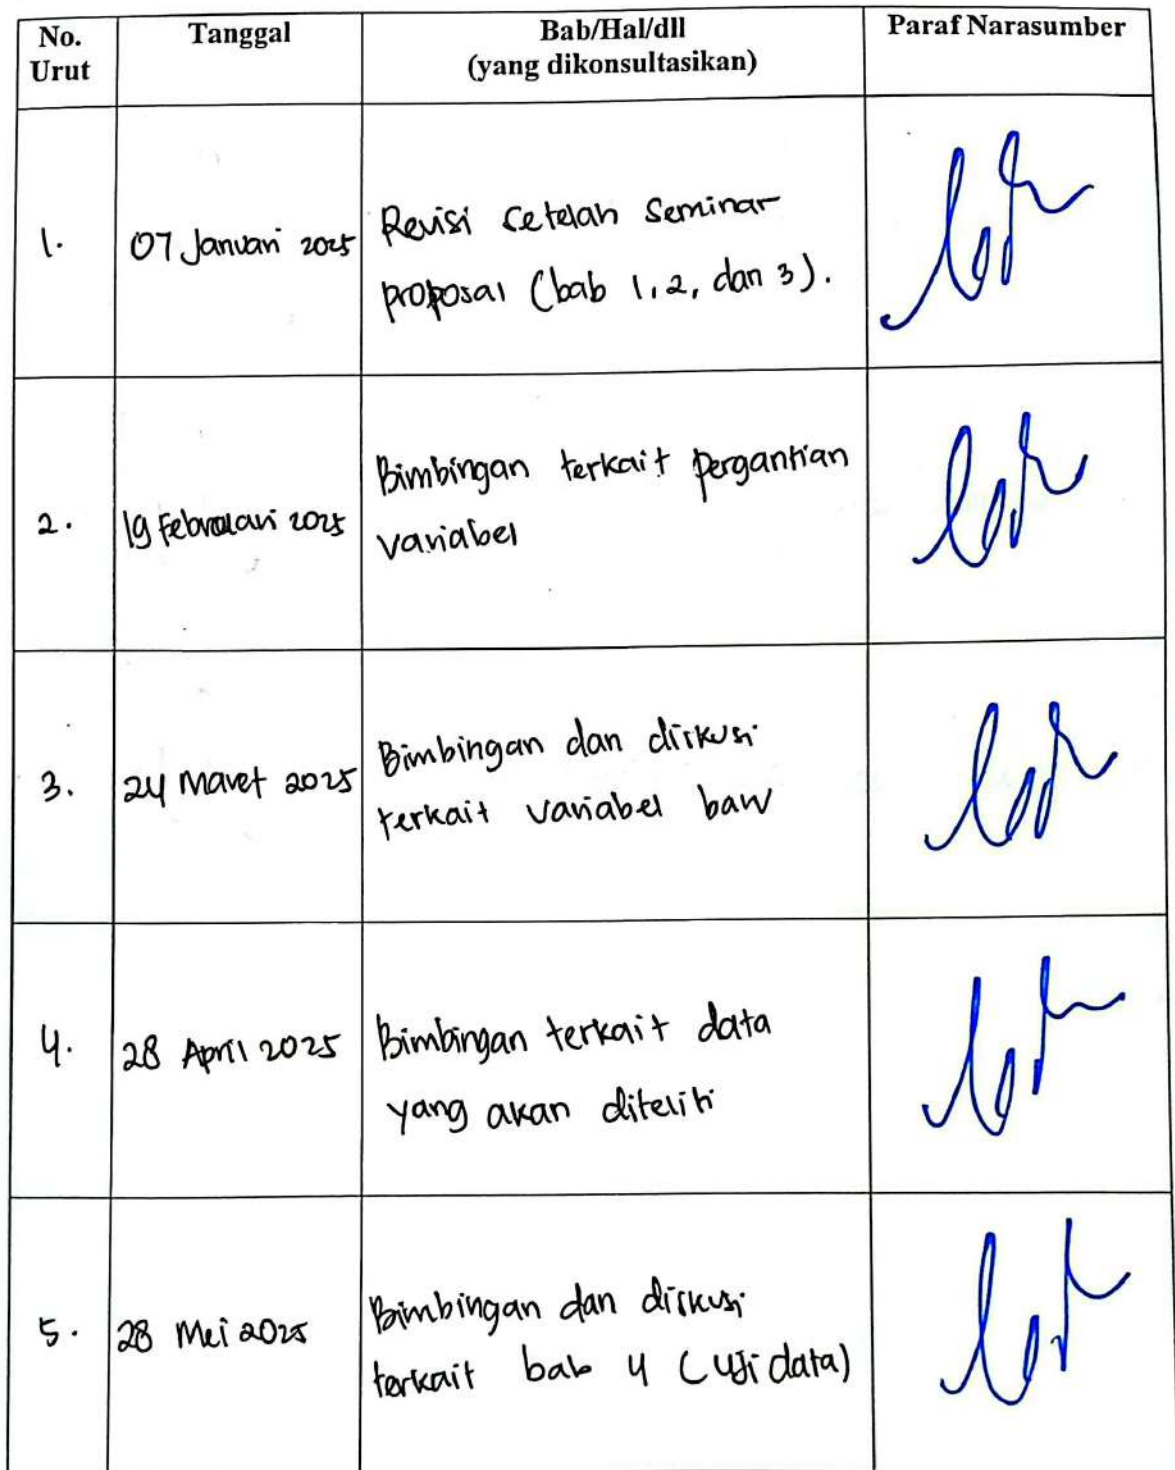 No. Urut Tanggal Bab/Hal/dll (yang dikonsultasikan) Paraf Narasumber
1. 07 Januari 2025 Revisi setelah seminar
proposal (bab 1, 2, dan 3).
2. 19 Februari 2025 Bimbingan terkait pergantian
variabel
3. 24 Maret 2025 Bimbingan dan diskusi
terkait variabel baru
4. 28 April 2025 Bimbingan terkait data
yang akan diteliti
5. 28 Mei 2025 Bimbingan dan diskusi
terkait bab 4 (uji data)